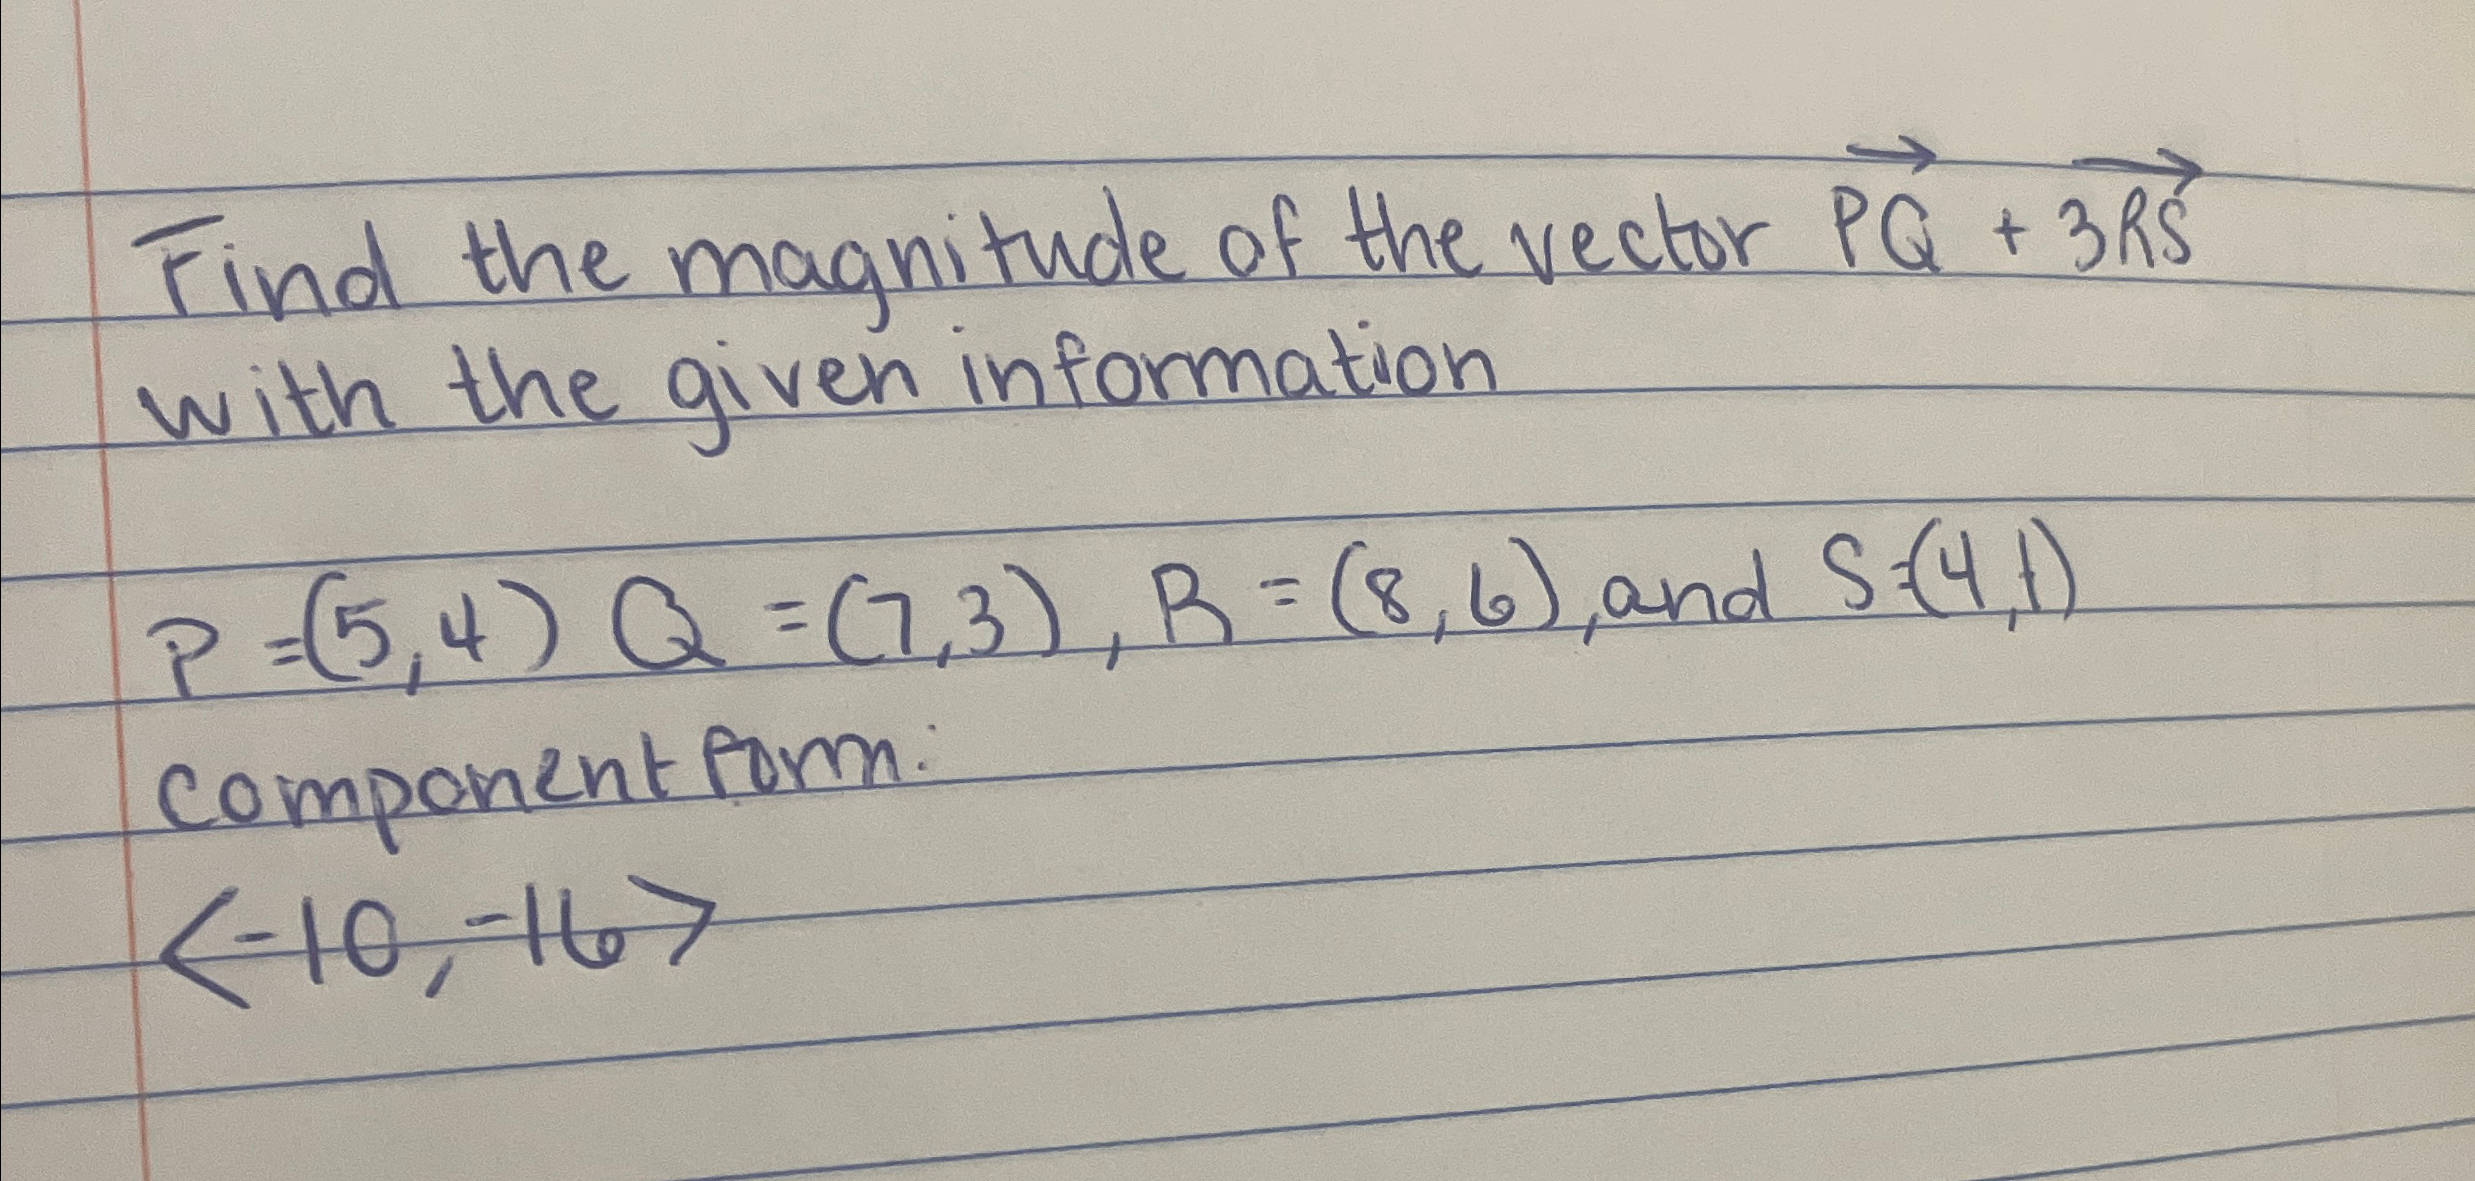 Find the magnitude of the vector \overrightarrow{PQ} + 3\overrightarrow{RS}
with the given information
P=(5,4) Q=(7,3), R=(8,6), and S=(4,1)
component form:
<-10,-16>